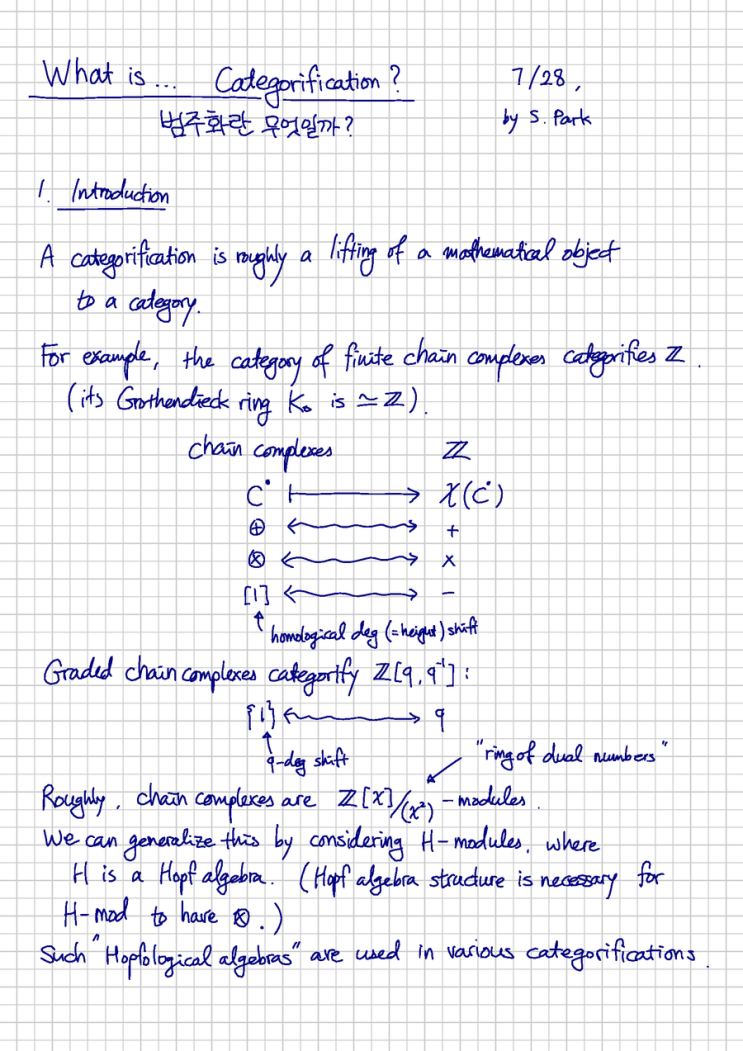 What is ... Categorification? 7/28,
범주화란 무엇일까? by S. Park
1. Introduction
A categorification is roughly a lifting of a mathematical object
to a category.
For example, the category of finite chain complexes categorifies ℤ.
(its Grothendieck ring K₀ is ≃ ℤ).
chain complexes ℤ
C^• ⟼ χ(C^•)
⊕ ↭ +
⊗ ↭ ×
[1] ↭ −
↑ homological deg (=height) shift
Graded chain complexes categorify ℤ[q, q⁻¹] :
{1} ↭ q
↑ q-deg shift
"ring of dual numbers"
Roughly, chain complexes are ℤ[X]/(X²) -modules.
We can generalize this by considering H-modules, where
H is a Hopf algebra. (Hopf algebra structure is necessary for
H-mod to have ⊗.)
Such "Hopfological algebras" are used in various categorifications.